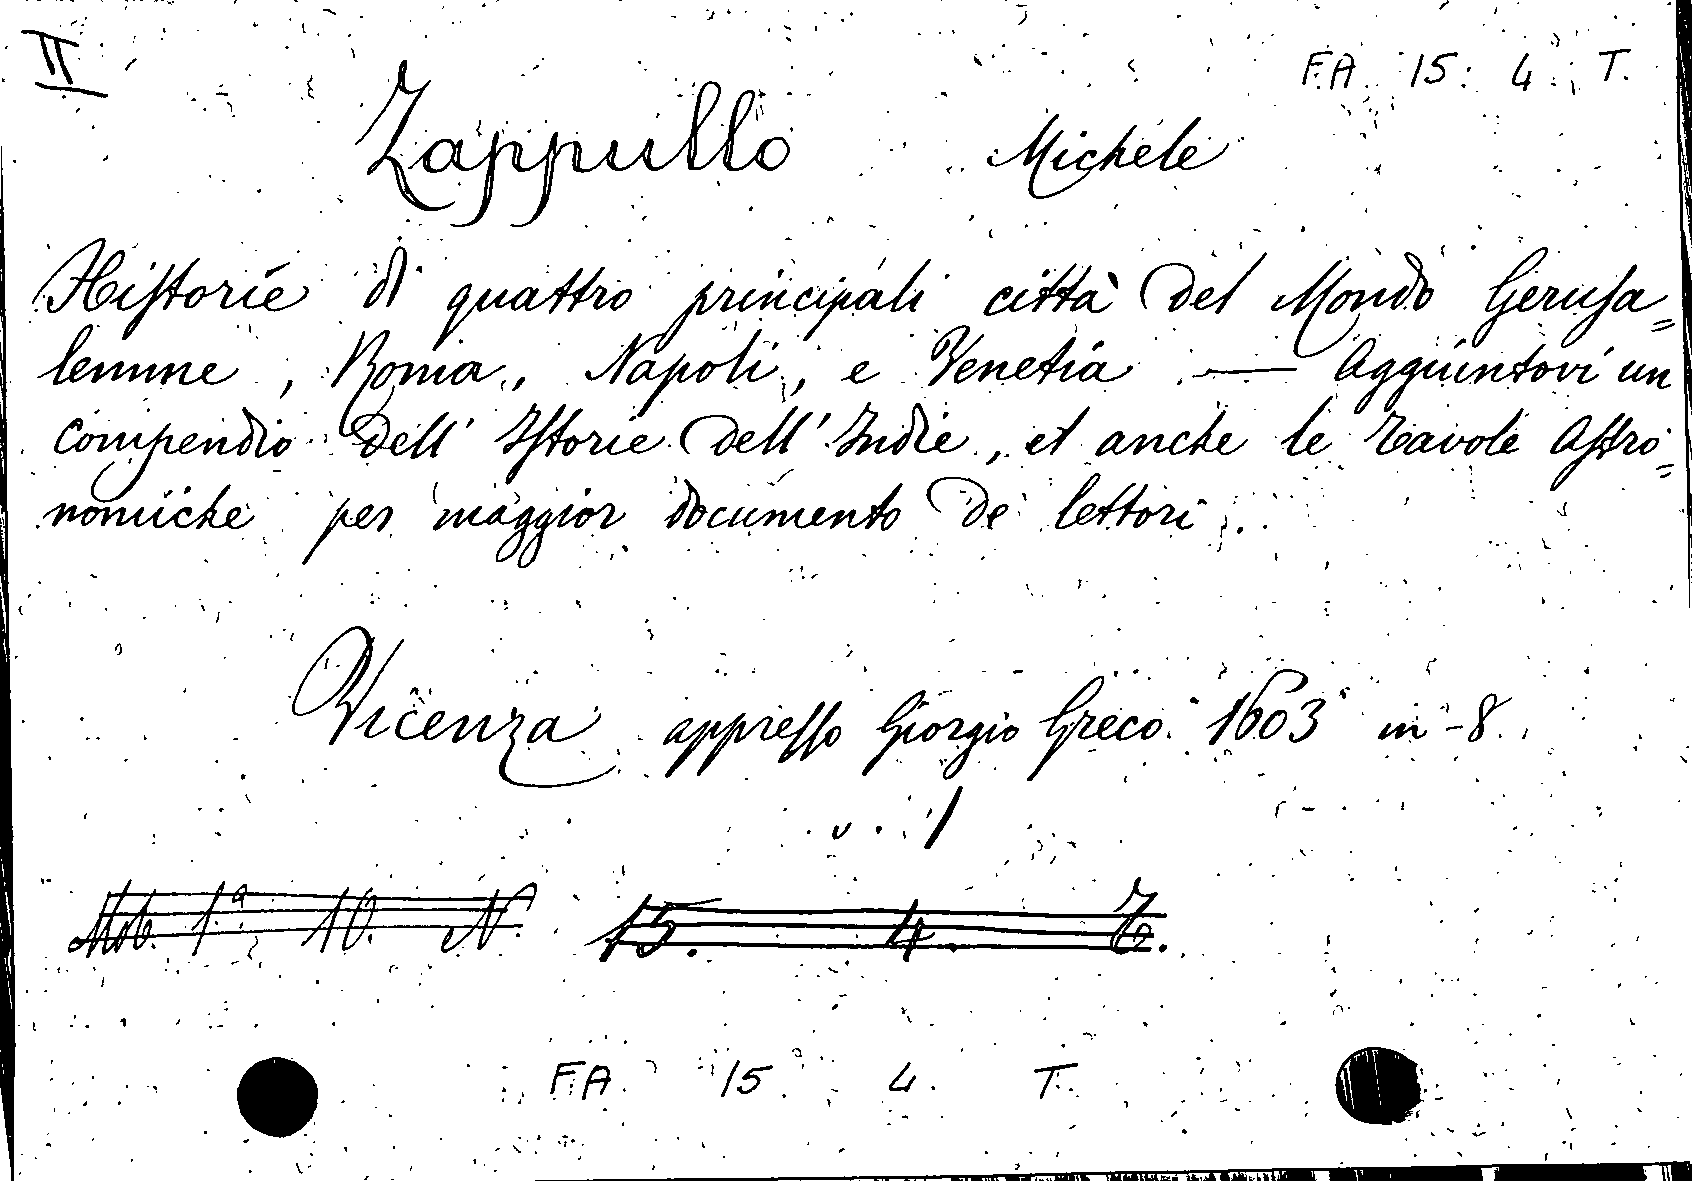 II
F.A. 15. 4. T.
Zappullo Michele
Historie di quattro principali città del Mondo Gerusa=
lemme, Roma, Napoli, e Venetia — Aggiuntovi un
compendio dell' Istorie dell' Indie, et anche le tavole Astro=
nomiche per maggior documento de lettori.
Vicenza appresso Giorgio Greco 1603 in-8.
v. 1
Mob. 1ª 10. N. 15. 4. T.
F.A. 15 4. T.